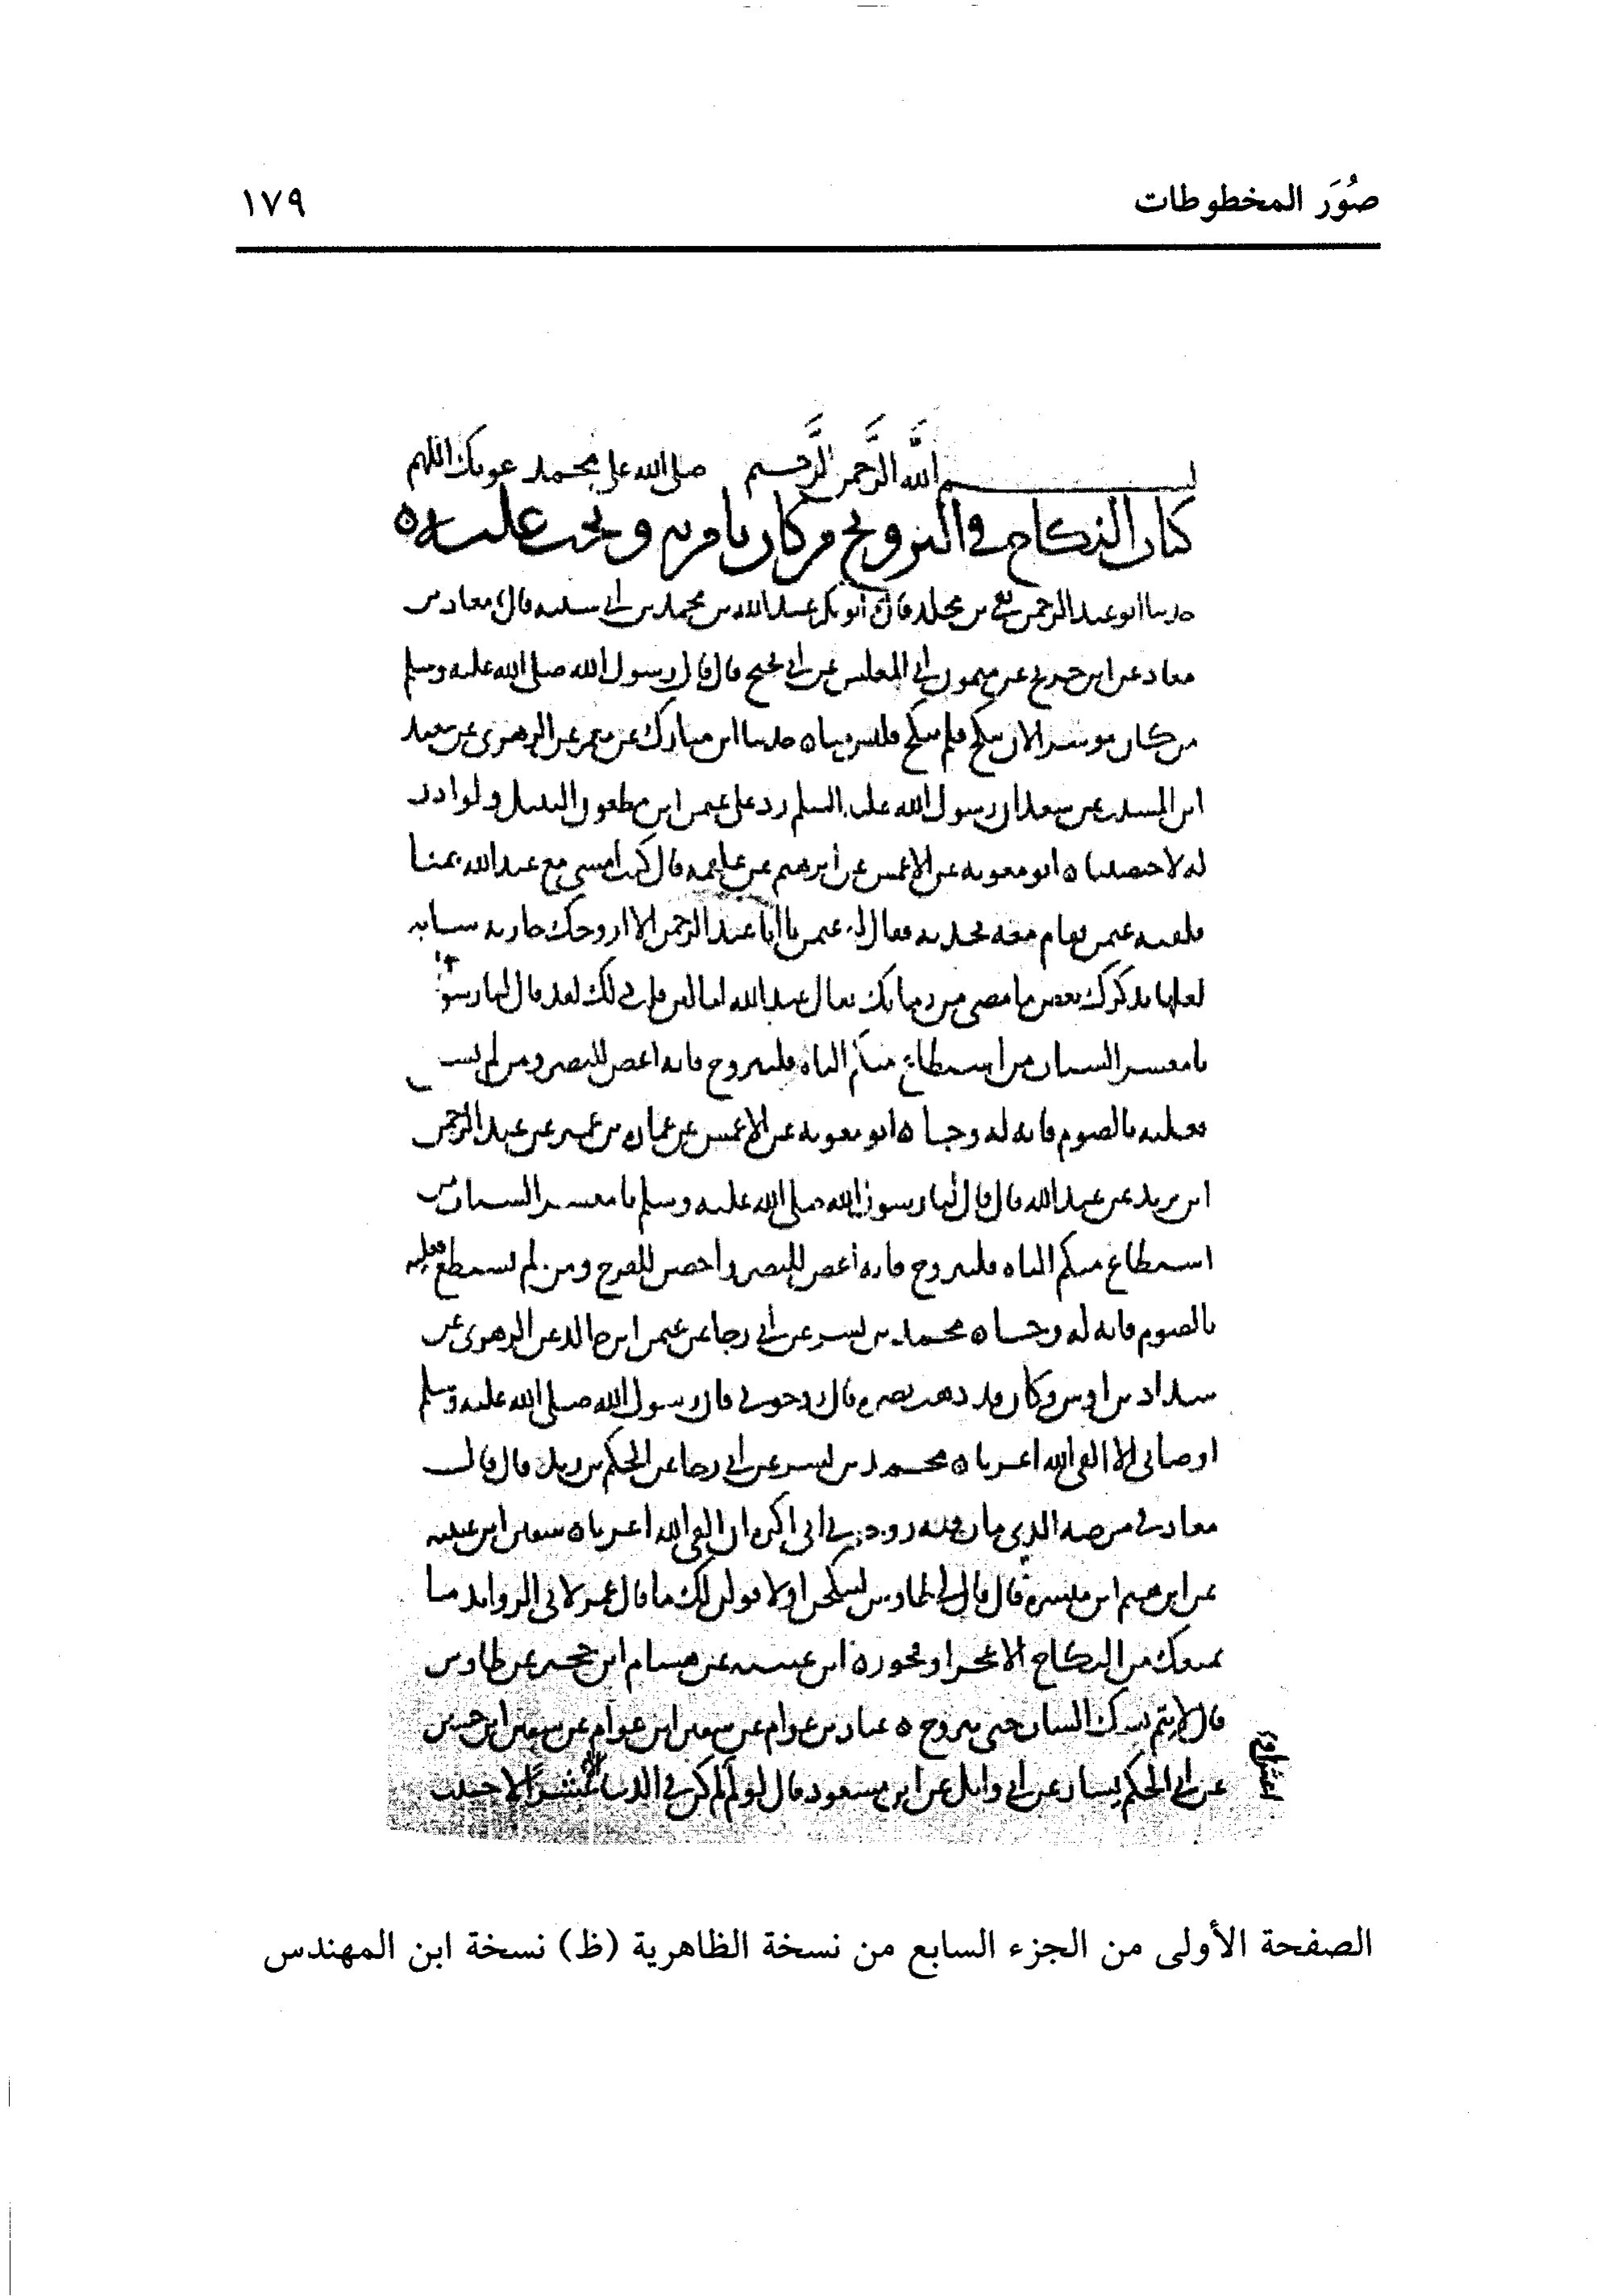 صُوَر المخطوطات ١٧٩
بسم الله الرَّحمن الرَّحيم صلى الله على محمد عونك اللهم
كتاب النكاح في التزويج من كان يامر به ويحث عليه ه
حدثنا ابو عبد الرحمن بقي بن مخلد قال أبو بكر عبد الله بن محمد بن ابي شيبة قال معاذ بن
معاذ عن ابن جريج عن ميمون ابي المغلس عن ابي نجيح قال قال رسول الله صلى الله عليه وسلم
من كان موسرا لان ينكح فلم ينكح فليس منا ه حدثنا ابن مبارك عن معمر عن الزهري عن سعيد
ابن المسيب عن سعد ان رسول الله عليه السلم رد على عثمن ابن مظعون التبتل ولو اذن
له لاختصينا ه ابو معوية عن الاعمش عن أبرهيم عن علقمة قال كنت امشي مع عبد الله بمنا
فلقيه عثمن فقام معه يحدثه فقال له عثمن يا أبا عبد الرحمن الا ازوجك جارية شابة
لعلها تذكرك بعض ما مضى من زمانك فقال عبد الله اما لئن قلت ذلك لقد قال لنا رسول
يا معشر الشباب من استطاع منكم الباه فليتزوج فانه اغض للبصر ومن لم
فعليه بالصوم فانه له وجا ه ابو معوية عن الاعمش عن عمارة بن عمير عن عبد الرحمن
ابن يزيد عن عبد الله قال قال لنا رسول الله صلى الله عليه وسلم يا معشر الشباب من
استطاع منكم الباه فليتزوج فانه أغض للبصر واحصن للفرج ومن لم يستطع فعليه
بالصوم فانه له وجا ه محمد بن بشر عن ابي رجا عن عثمن ابن خالد عن الزهري عن
شداد بن اوس وكان قد ذهب بصره قال زوجوني فان رسول الله صلى الله عليه وسلم
اوصاني الا القى الله اعزبا ه محمد بن بشر عن ابي رجا عن الحكم بن زيد قال قال
معاذ في مرضه الذي مات فيه زوجوني اني اكره ان القى الله اعزبا ه سفين ابن عيينه
عن ابرهيم ابن ميسرة قال قال لي طاوس لتنكحن او لاقولن لك ما قال عمر لابي الزوايد ما
يمنعك من النكاح الا عجز او فجور ه ابن عيينه عن هشام ابن حجير عن طاوس
قال لا يتم نسك الشاب حتى يتزوج ه عباد بن عوام عن سفين ابن عوام عن سفين ابن حسين
عن ابي الحكم يسار عن ابي وايل عن ابن مسعود قال لو لم اكن في الدنيا الا عشرا لاحببت
الصفحة الأولى من الجزء السابع من نسخة الظاهرية (ظ) نسخة ابن المهندس